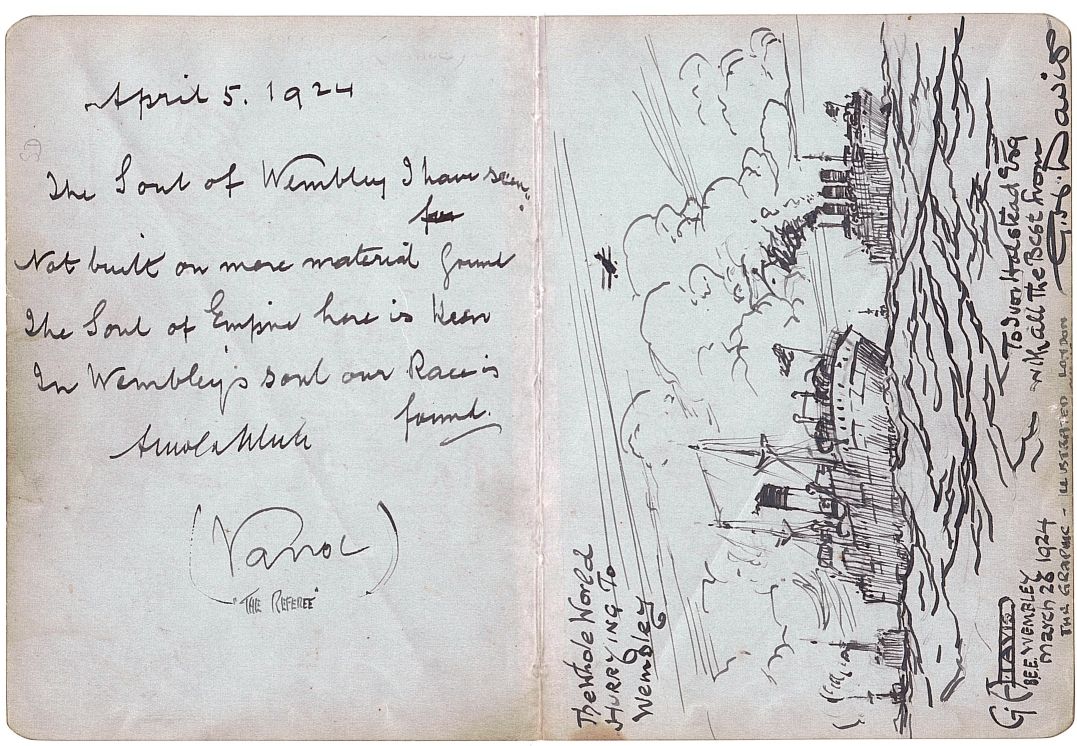 April 5. 1924
The Soul of Wembley I have seen
Not built on mere material Ground
The Soul of Empire here is Keen
In Wembley's soul our Race is
found.
(Vanoc)
"THE REFEREE"
The Whole World
HURRYING To
Wembley
To Ivor Halstead Esq
with all The Best from
G.H. Davis
G.H. DAVIS
B.E.E. WEMBLEY
March 26 1924
THE GRAPHIC - ILLUSTRATED LONDON